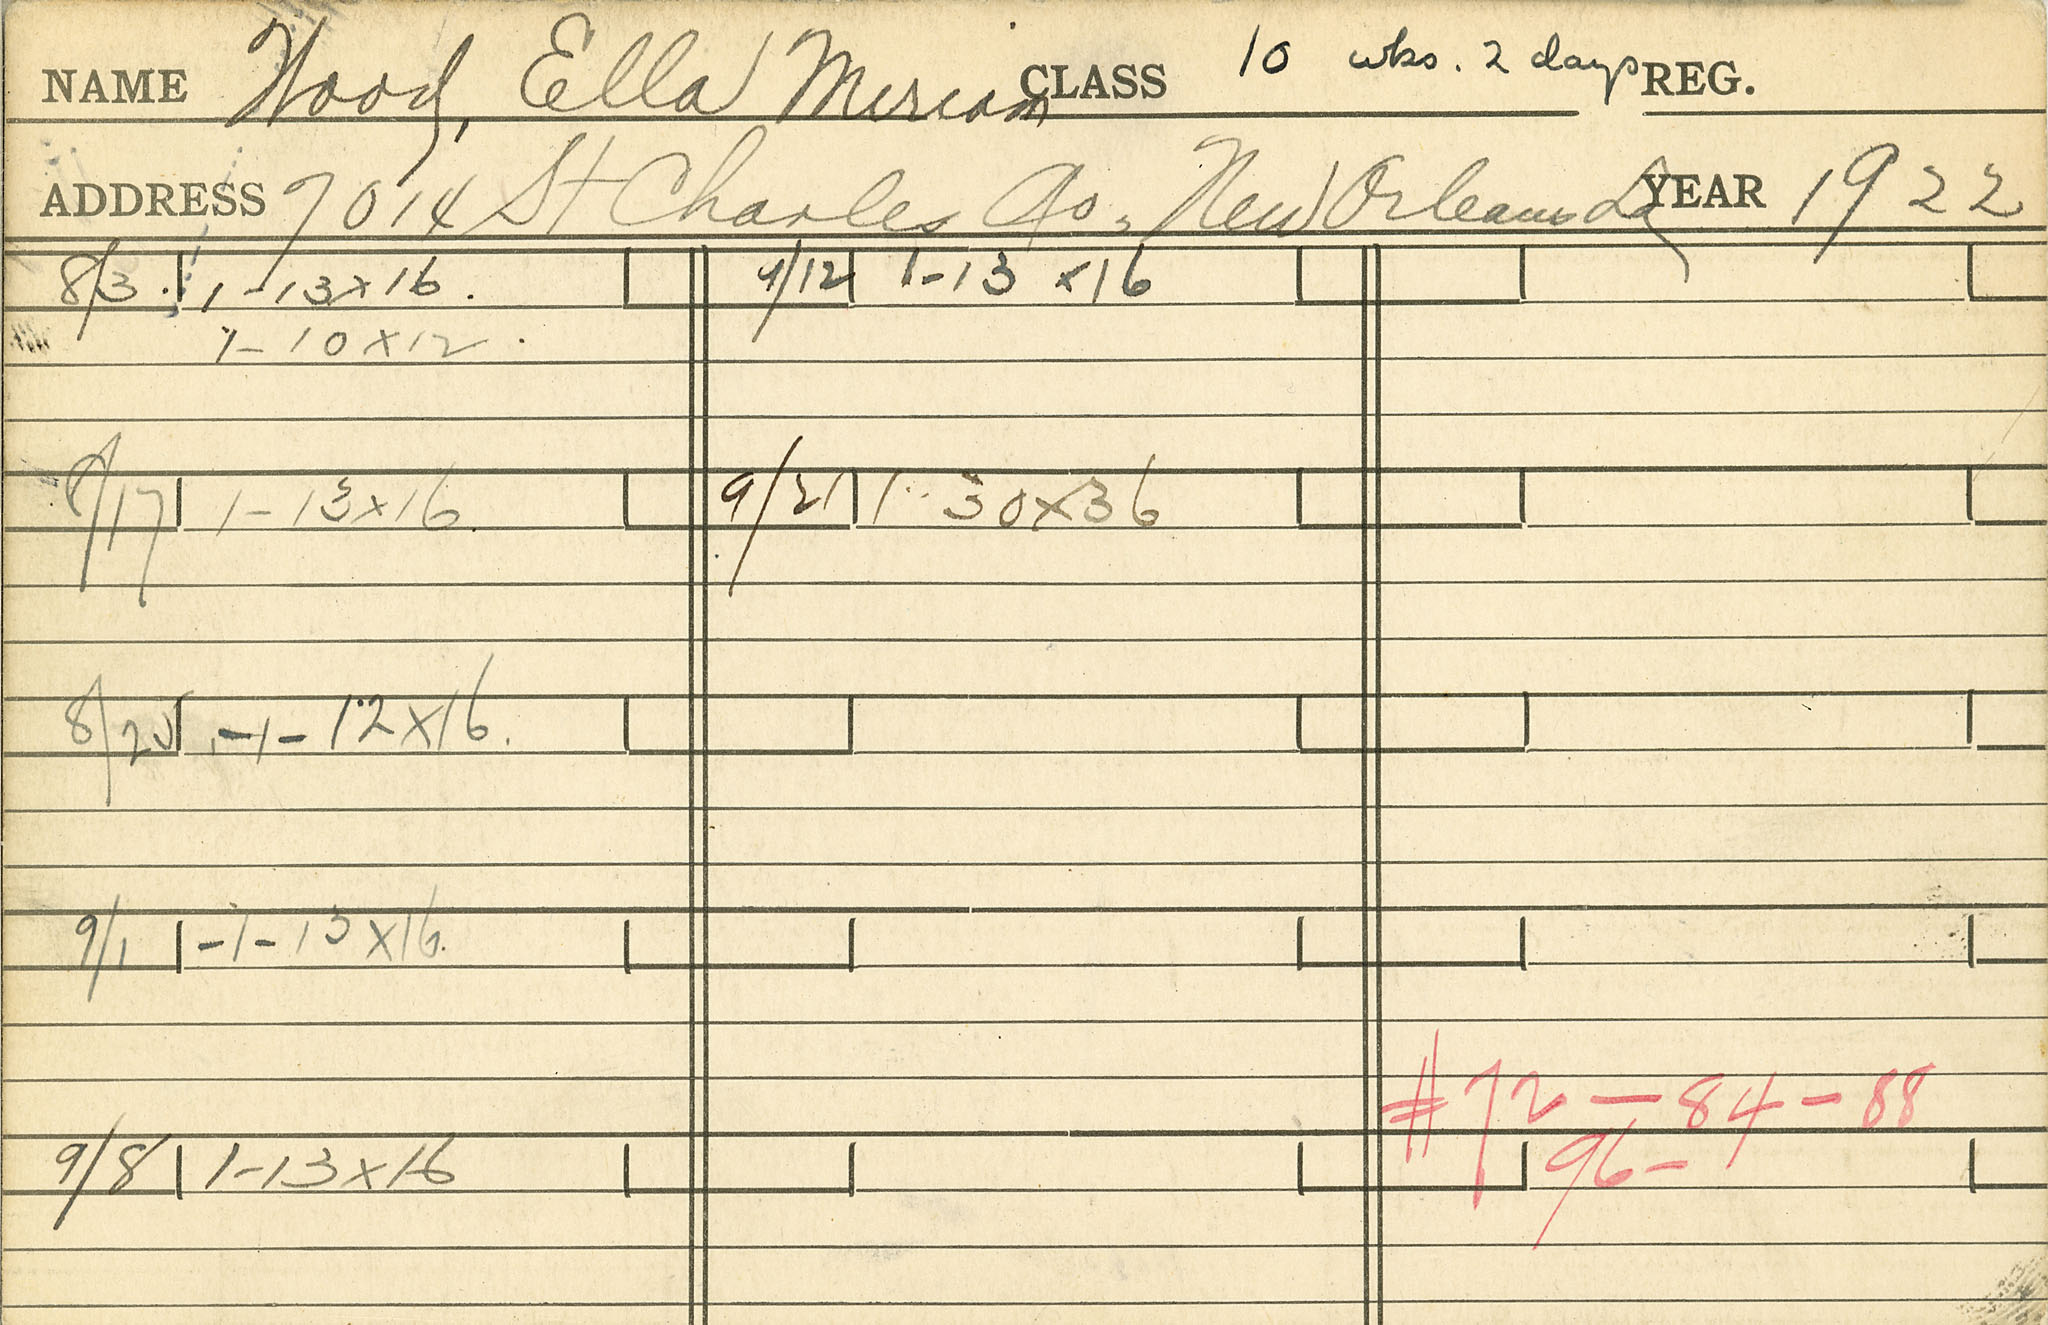 NAME Wood, Ella Miriam CLASS 10 wks. 2 days REG.
ADDRESS 7014 St Charles Av., New Orleans La YEAR 1922
8/3. 1-13x16.
1-10x12.
8/17 1-13x16.
8/25 -1-12x16.
9/1 -1-13x16.
9/8 1-13x16
9/12 1-13x16
9/21 1-30x36
#72-84-88
96-